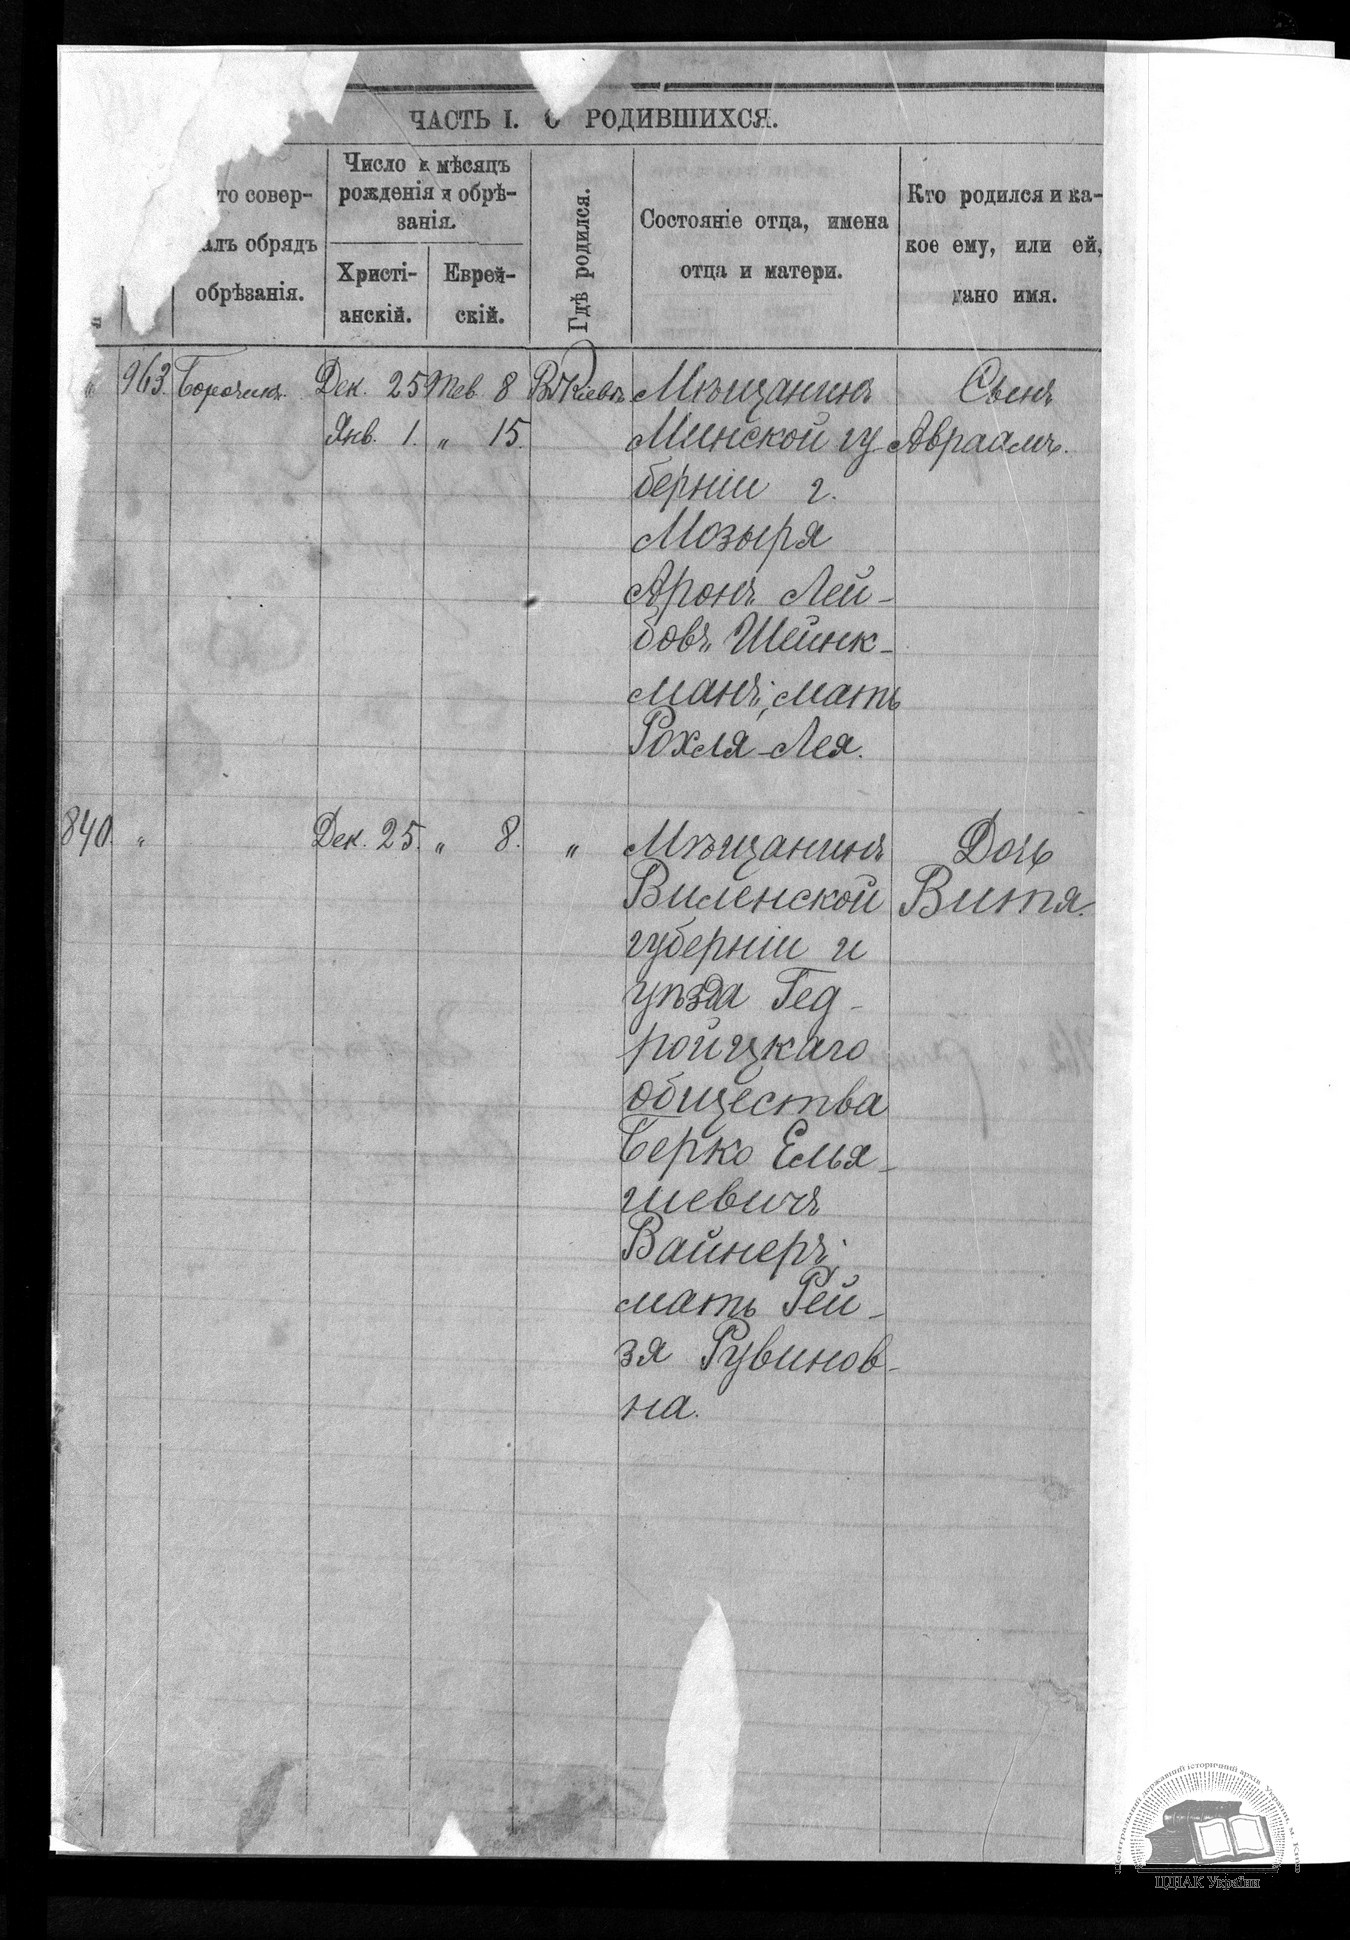 ЧАСТЬ I. О РОДИВШИХСЯ.
то совер-
алъ обрядъ
обрѣзанія.
Число и мѣсяцъ
рожденія и обрѣ-
занія.
Христі-
анскій.
Еврей-
скій.
Гдѣ родился.
Состояніе отца, имена
отца и матери.
Кто родился и ка-
кое ему, или ей,
дано имя.
„ 963. Дек. 25 Тев. 8 Въ Кіевѣ
Янв. 1. „ 15.
Мѣщанинъ
Минской гу
берніи г.
Мозыря
Аронъ Лей-
бовъ Шейнк-
манъ; мать
Рохля-Лея.
Сынъ
Авраамъ.
840. „ Дек. 25. „ 8. „
Мѣщанинъ
Виленской
губерніи и
уѣзда Гед-
ройцкаго
общества
Берко Елья-
шевичъ
Вайнеръ;
мать Рей-
зя Рувинов-
на.
Дочь
Витя.
Центральний державний історичний архів України, м. Київ
ЦДІАК України